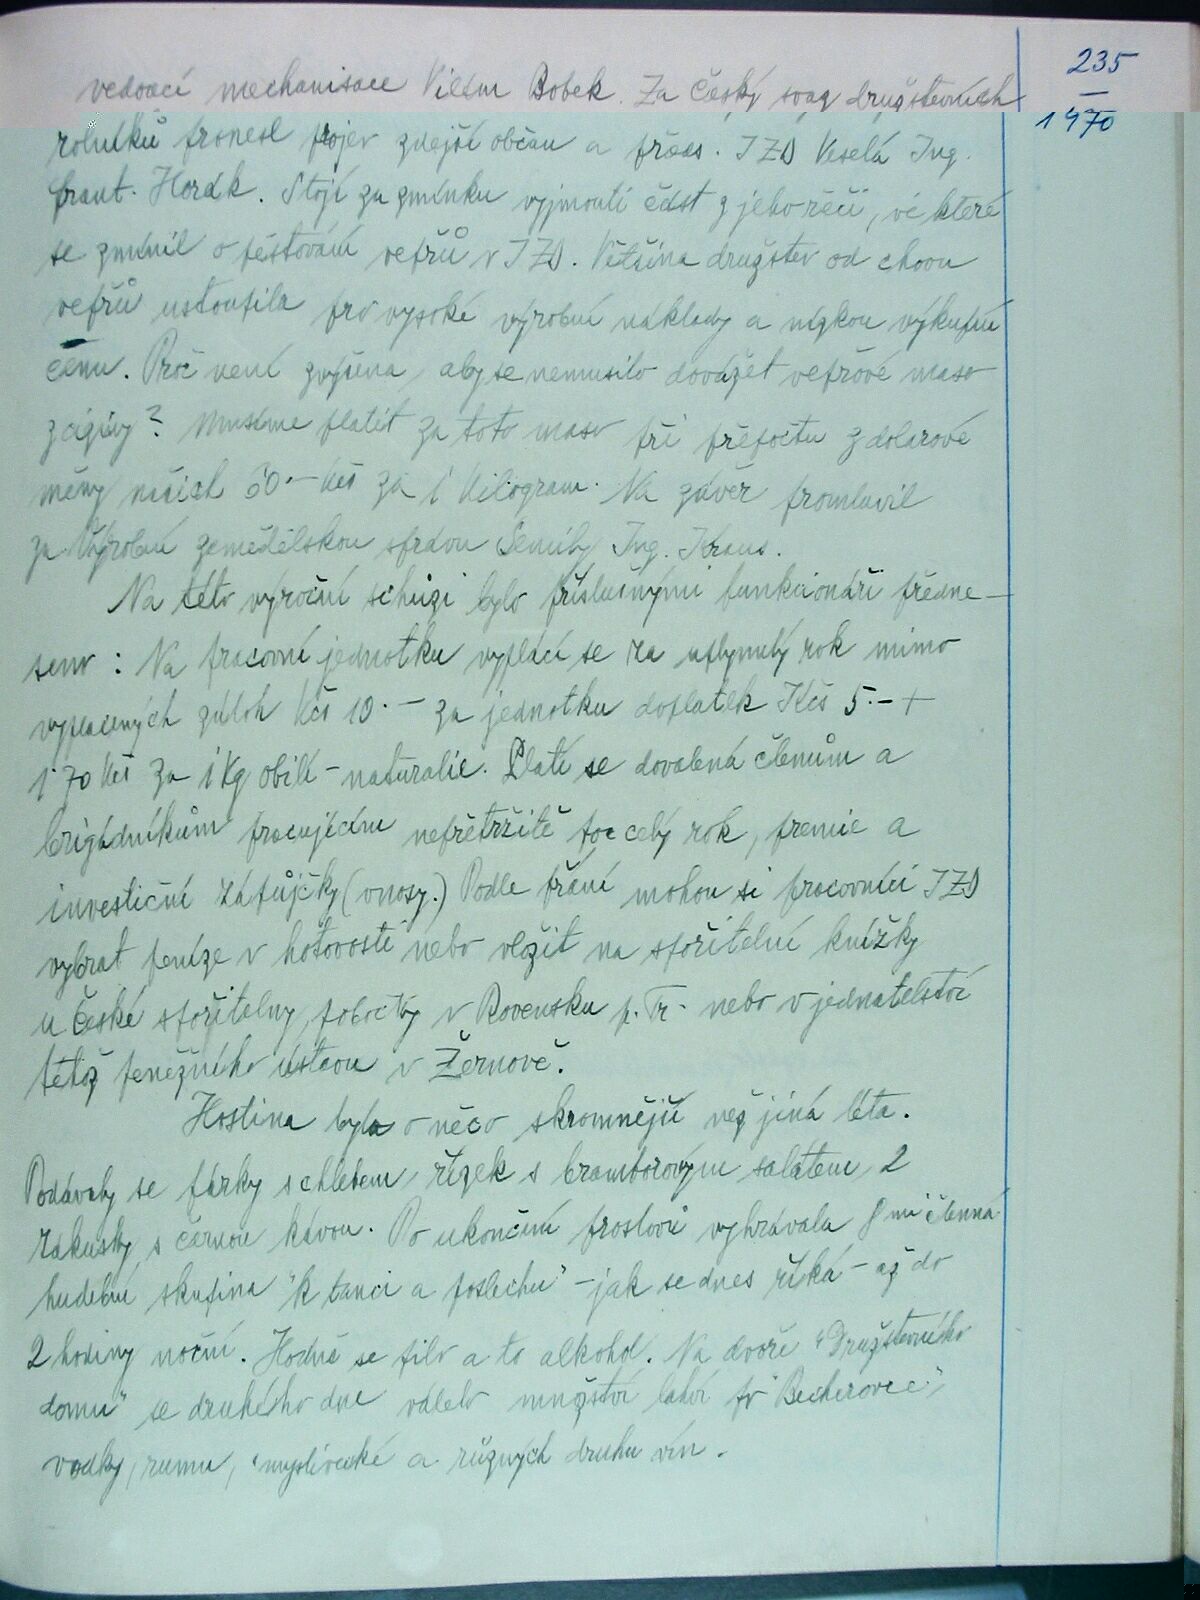 235
1970
vedoucí mechanisace Vilém Bobek. Za Český svaz družstevních
rolníků pronesl projev zdejší občan a předs. JZD Veselá Ing.
Frant. Horák. Stojí za zmínku vyjmouti část z jeho řeči, ve které
se zmínil o pěstování vepřů v JZD. Většina družstev od chovu
vepřů ustoupila pro vysoké výrobní náklady a nízkou výkupní
cenu. Proč není zvýšena, aby se nemusilo dovážet vepřové maso
z ciziny? Musíme platit za toto maso při přepočtu z dolarové
měny našich 60.- Kčs za 1 kilogram. Na závěr promluvil
za Výrobní zemědělskou správu Semily Ing. Kraus.
Na této výroční schůzi bylo příslušnými funkcionáři předne-
seno: Na pracovní jednotku vyplácí se za uplynulý rok mimo
vyplacených záloh Kčs 10.- za jednotku doplatek Kčs 5.- +
1'70 Kčs za 1 Kg obilí - naturalie. Platí se dovolená členům a
brigádníkům pracujícím nepřetržitě po celý rok, premie a
investiční zápůjčky (vnosy.) Podle přání mohou si pracovníci JZD
vybrat peníze v hotovosti nebo vložit na spořitelní knížky
u České spořitelny, pobočky v Rovensku p. Tr. nebo v jednatelství
tétož peněžního ústavu v Žernově.
Hostina byla o něco skromnější než jiná léta.
Podávaly se párky s chlebem, řízek s bramborovým salátem, 2
zákusky s černou kávou. Po ukončení proslovů vyhrávala 8mi členná
hudební skupina "k tanci a poslechu" - jak se dnes říká - až do
2 hodiny noční. Hodně se pilo a to alkohol. Na dvoře "Družstevního
domu" se druhého dne válelo množství lahví po "Becherovce",
vodky, rumu, "myslivecké a různých druhu vín.